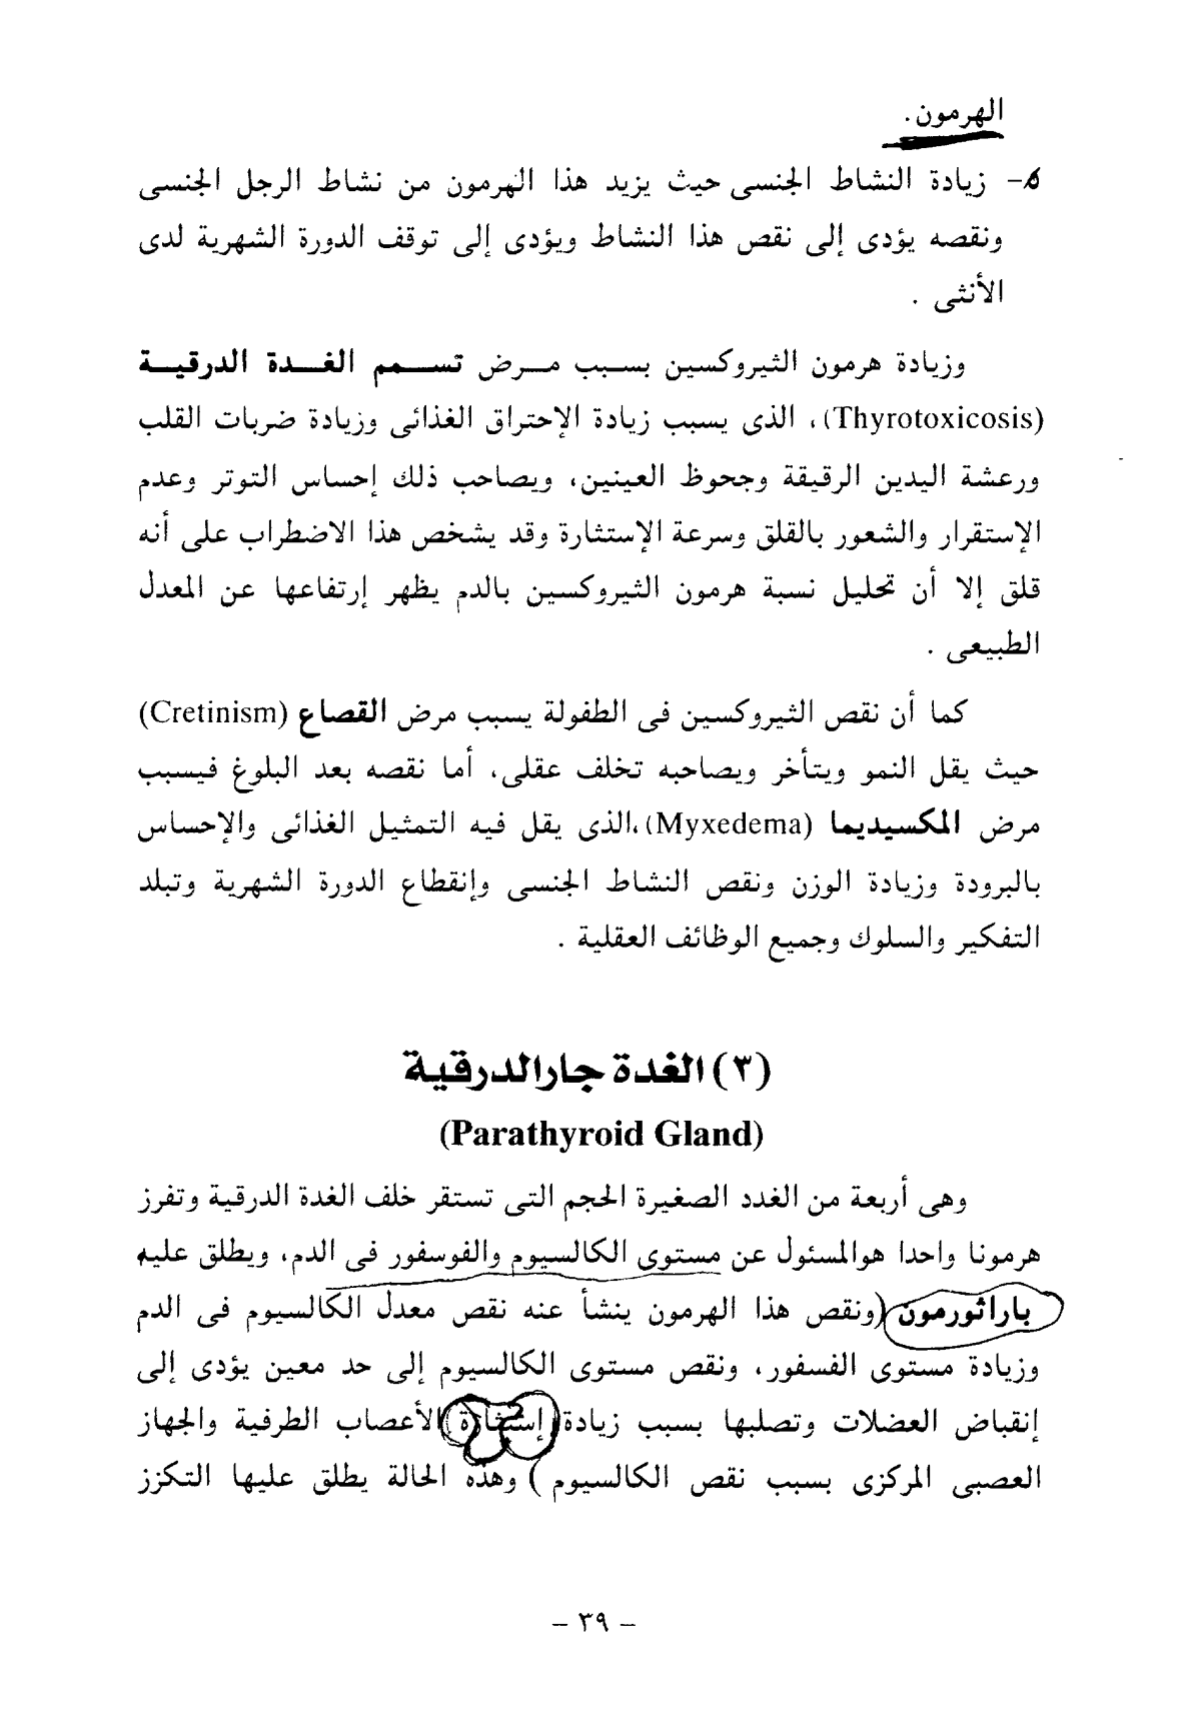 الهرمون .
٥- زيادة النشاط الجنسى حيث يزيد هذا الهرمون من نشاط الرجل الجنسى
ونقصه يؤدى إلى نقص هذا النشاط ويؤدى إلى توقف الدورة الشهرية لدى
الأنثى .
وزيادة هرمون الثيروكسين بسبب مرض تسمم الغدة الدرقية
(Thyrotoxicosis)، الذى يسبب زيادة الإحتراق الغذائى وزيادة ضربات القلب
ورعشة اليدين الرقيقة وجحوظ العينين، ويصاحب ذلك إحساس التوتر وعدم
الإستقرار والشعور بالقلق وسرعة الإستثارة وقد يشخص هذا الاضطراب على أنه
قلق إلا أن تحليل نسبة هرمون الثيروكسين بالدم يظهر إرتفاعها عن المعدل
الطبيعى .
كما أن نقص الثيروكسين فى الطفولة يسبب مرض القصاع (Cretinism)
حيث يقل النمو ويتأخر ويصاحبه تخلف عقلى، أما نقصه بعد البلوغ فيسبب
مرض المكسيديما (Myxedema)،الذى يقل فيه التمثيل الغذائى والإحساس
بالبرودة وزيادة الوزن ونقص النشاط الجنسى وإنقطاع الدورة الشهرية وتبلد
التفكير والسلوك وجميع الوظائف العقلية .
(٣) الغدة جارالدرقية
(Parathyroid Gland)
وهى أربعة من الغدد الصغيرة الحجم التى تستقر خلف الغدة الدرقية وتفرز
هرمونا واحدا هوالمسئول عن مستوى الكالسيوم والفوسفور فى الدم، ويطلق عليه
باراثورمون (ونقص هذا الهرمون ينشأ عنه نقص معدل الكالسيوم فى الدم
وزيادة مستوى الفسفور، ونقص مستوى الكالسيوم إلى حد معين يؤدى إلى
إنقباض العضلات وتصلبها بسبب زيادة إستثارة الأعصاب الطرفية والجهاز
العصبى المركزى بسبب نقص الكالسيوم ) وهذه الحالة يطلق عليها التكزز
- ٣٩ -